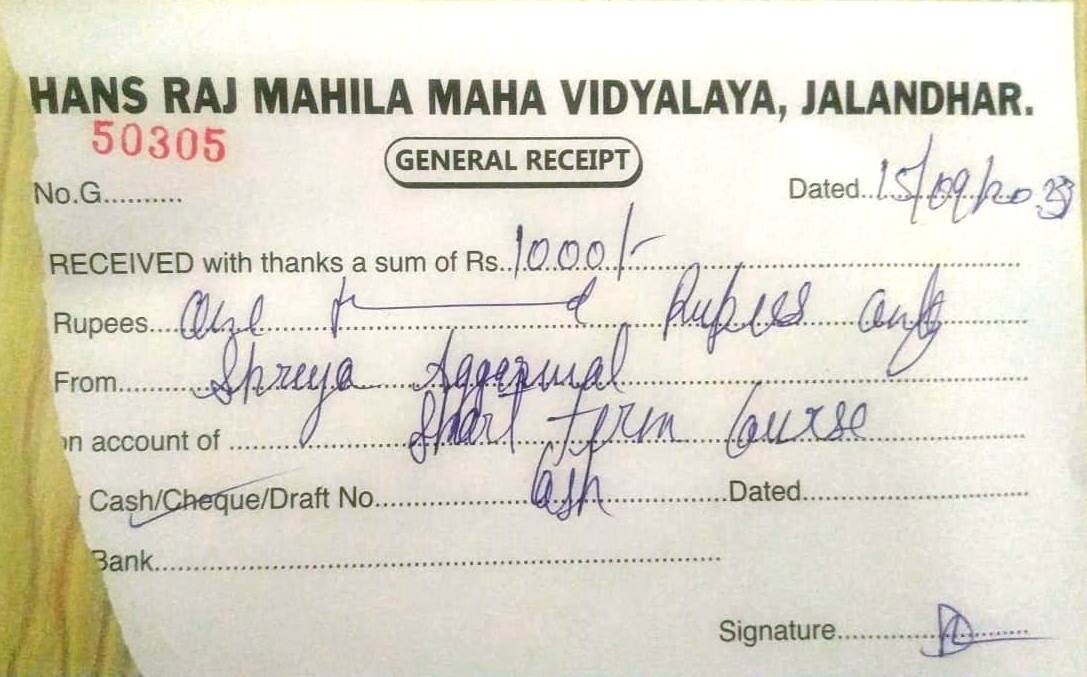 HANS RAJ MAHILA MAHA VIDYALAYA, JALANDHAR.
50305
GENERAL RECEIPT
No.G.......... Dated..15/09/2023
RECEIVED with thanks a sum of Rs..1000/-
Rupees... One Rupees only
From.......... Shreya Aggerwal
on account of .......... Short Term Course
Cash/Cheque/Draft No.......... Cash Dated..........
Bank..........
Signature..........